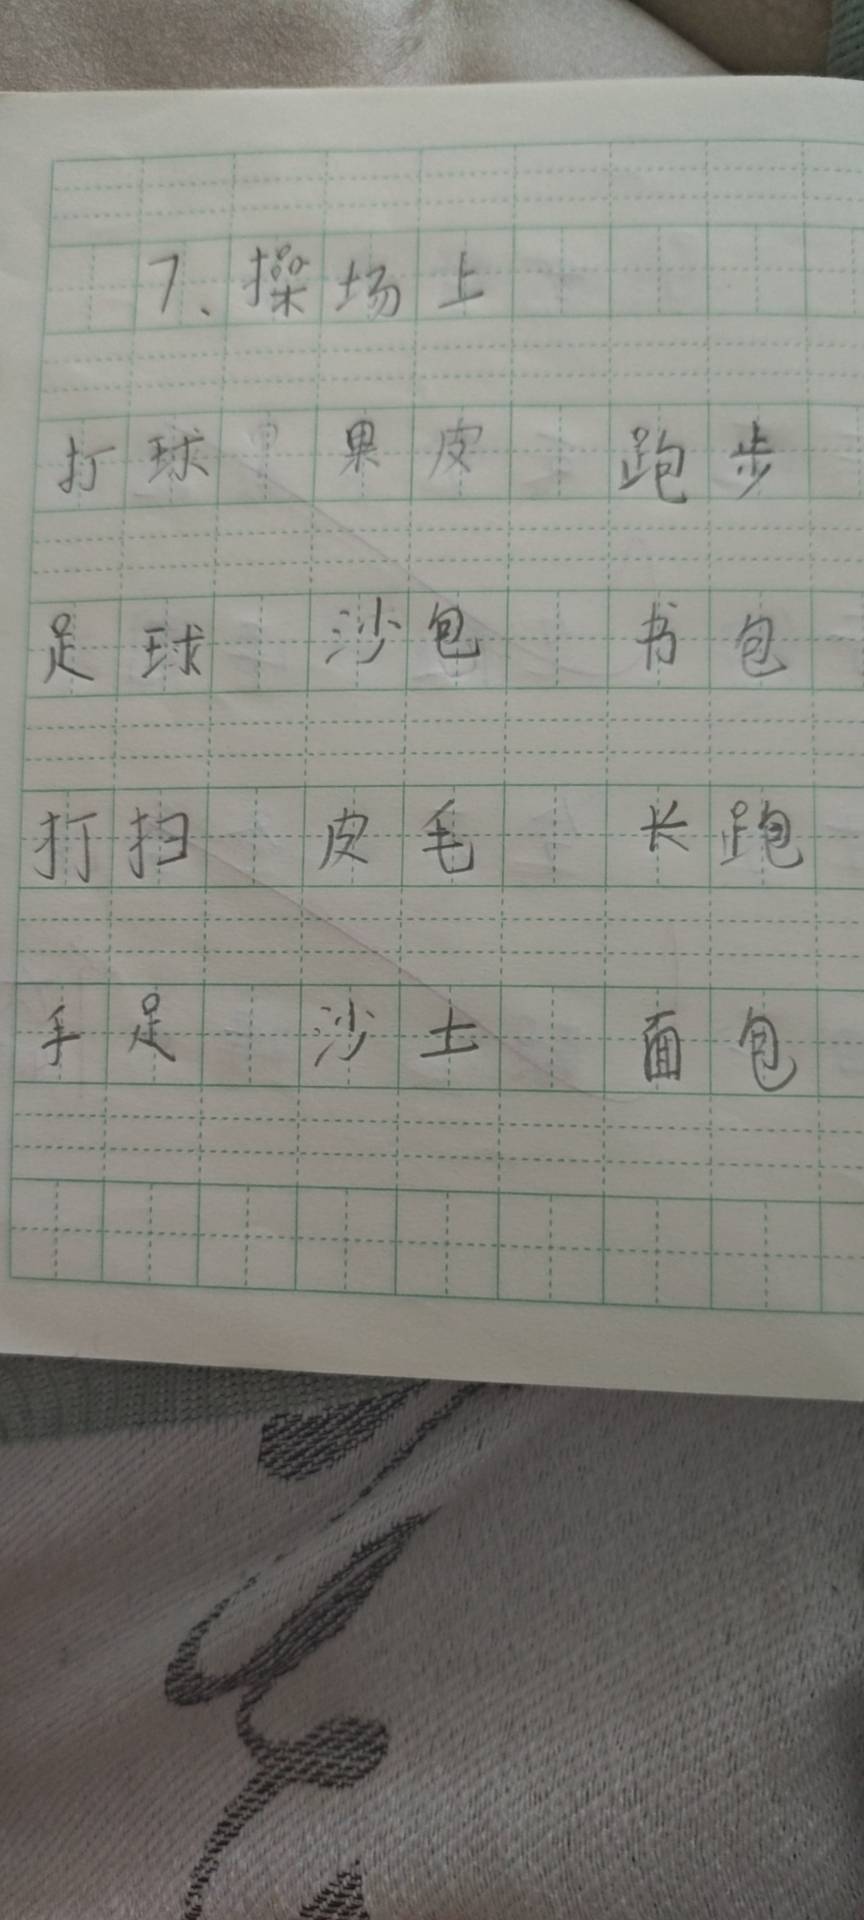 7、操场上
打球 果皮 跑步
足球 沙包 书包
打扫 皮毛 长跑
手足 沙土 面包